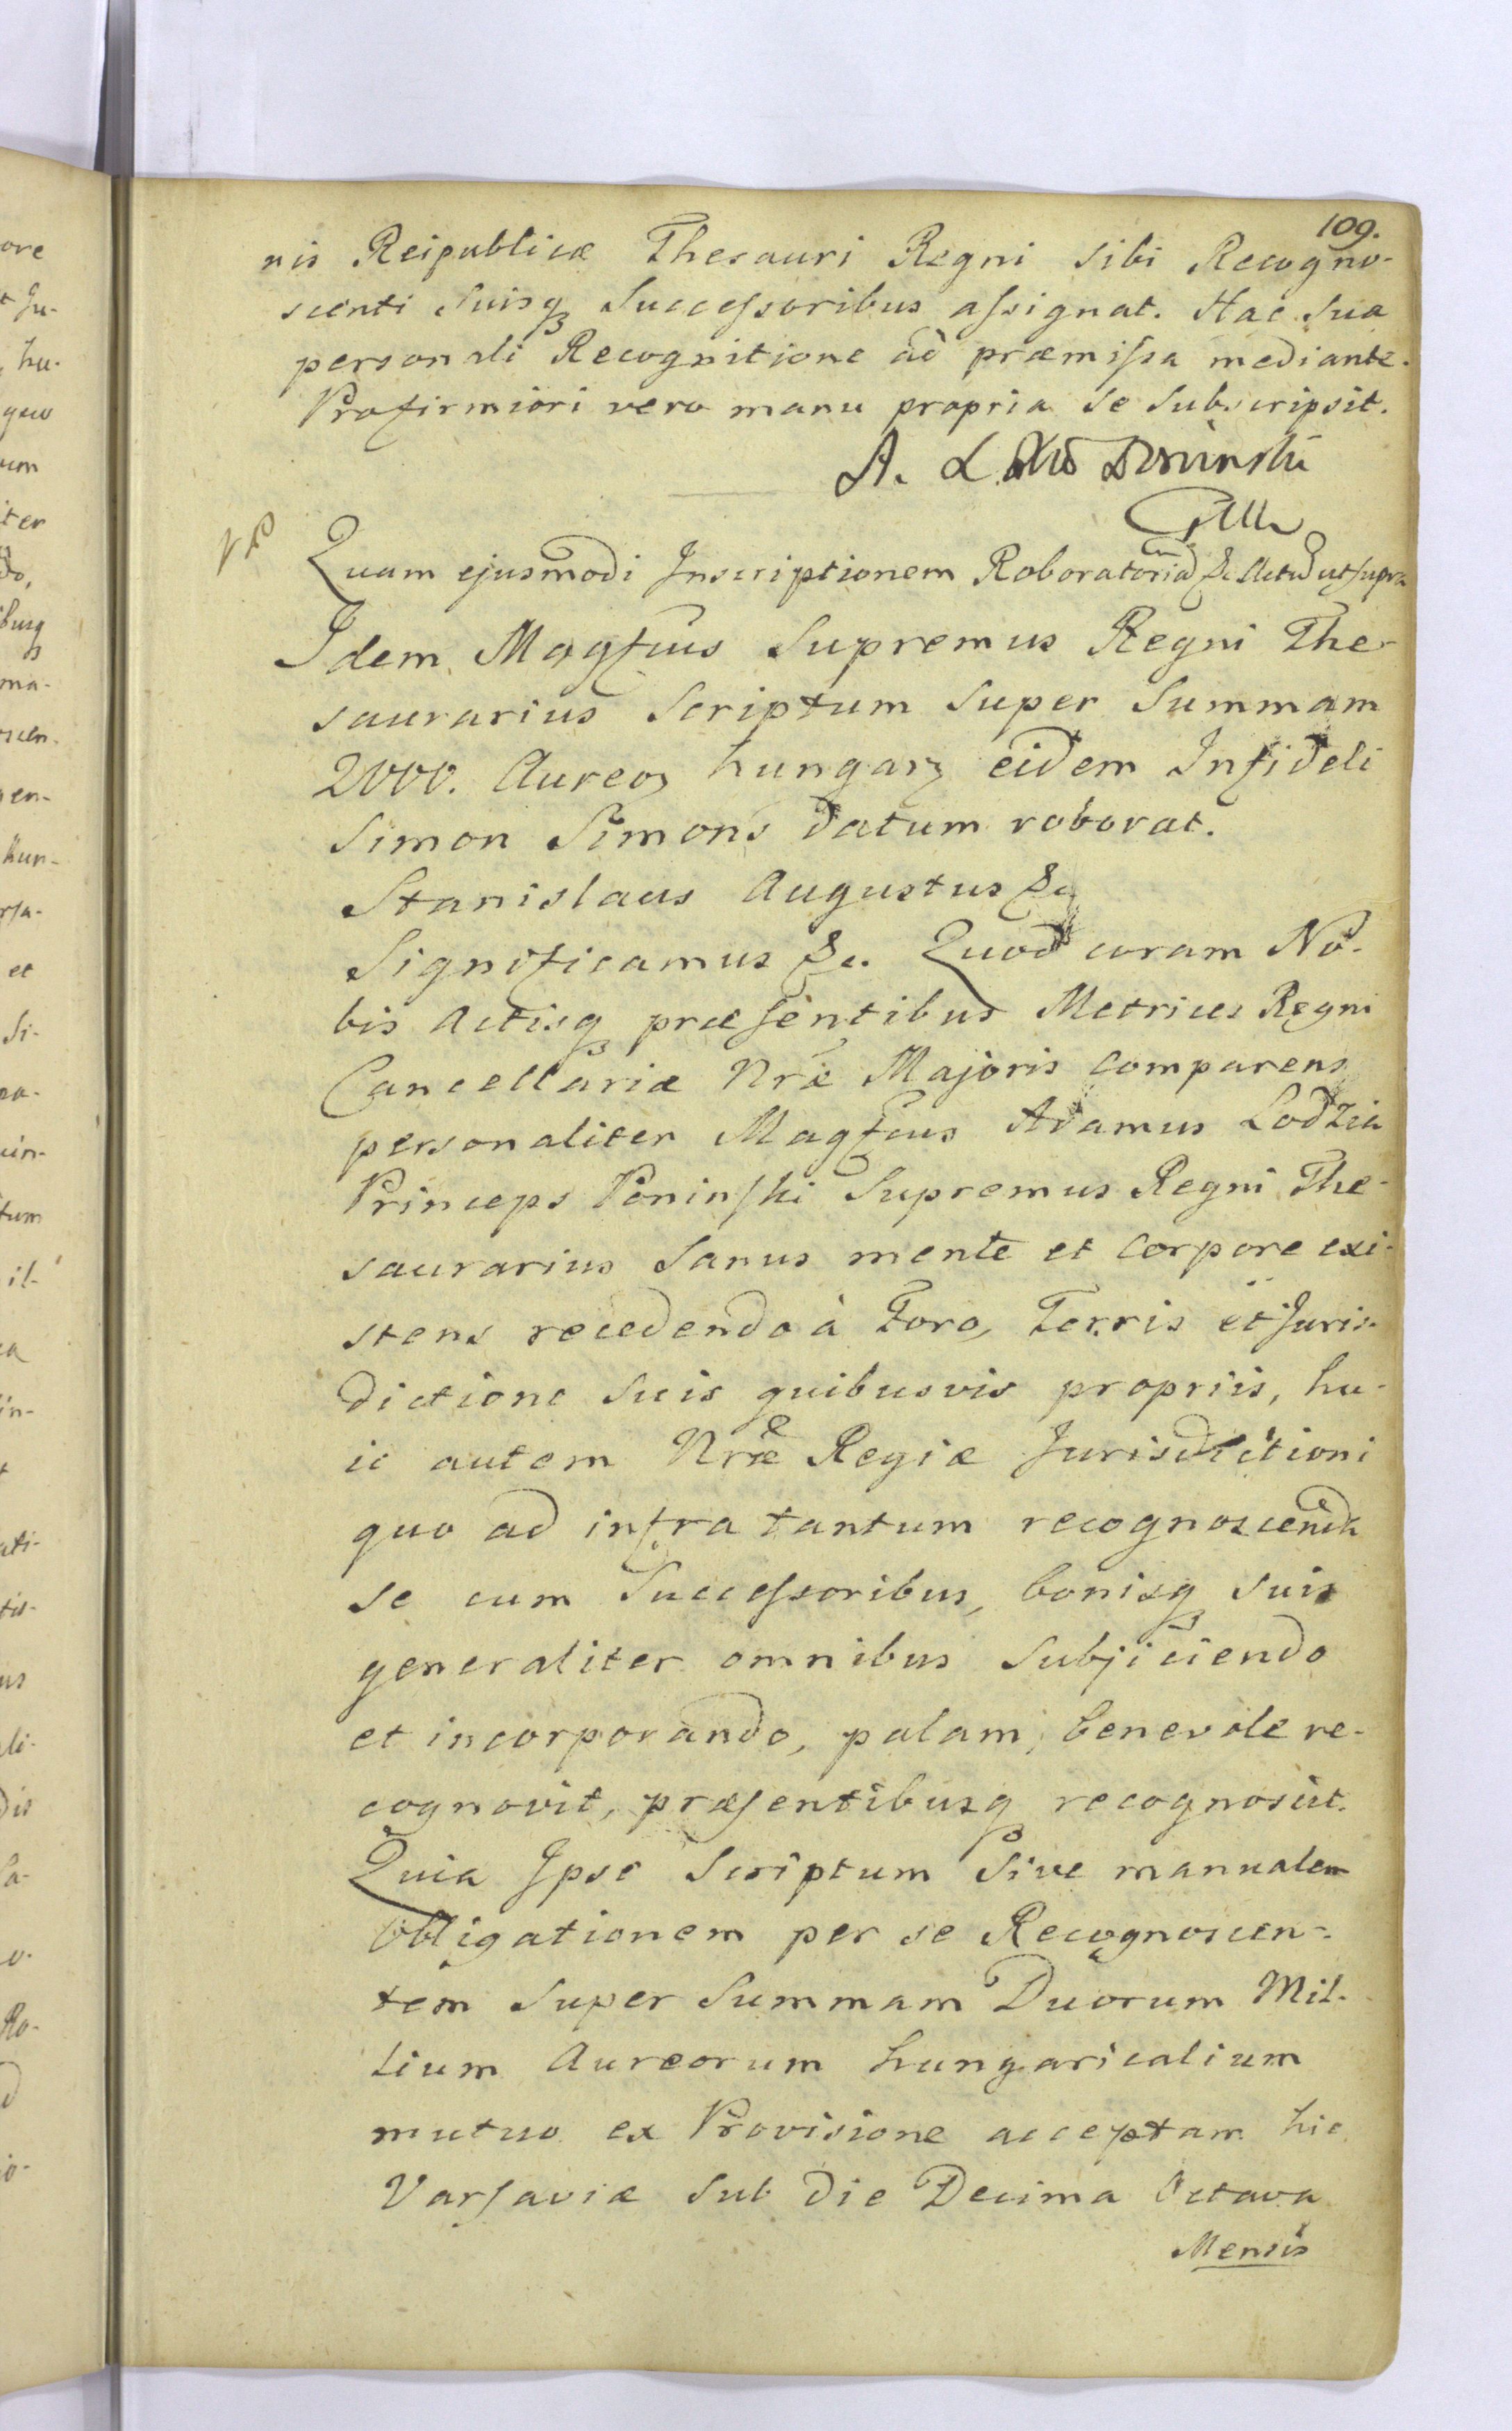 109.
nis Reipublicæ Thesauri Regni sibi Recogno-
scenti Suisqꝫ Successoribus assignat. Hac Sua
personali Recognitione ad præmissa mediante.
Profirmiori vero manu propria se subscripsit.
A. L.
Quam ejusmodi Inscriptionem Roboratoriam &c. Actu ut supra
Idem Magfcus Supremus Regni The-
saurarius Scriptum super Summam
2000. Aureoꝝ hungarꝫ eidem Infideli
Simon Simons datum roborat.
Stanislaus Augustus &c
Significamus &c. Quod coram No-
bis Actisqꝫ præsentibus Metrices Regni
Cancellariæ Nræ Majoris Comparens
personaliter Magfcus Adamus Lodzia
Princeps Poninski Supremus Regni The-
saurarius Sanus mente et Corpore exi-
stens recedendo à Foro, Terris et Juris-
dictione Suis quibusvis propriis, hu-
ic autem Nræ Regiæ Jurisdictioni
quo ad infra tantum recognoscenda
se cum Successoribus, bonisqꝫ suis
generaliter omnibus Subjiciendo
et incorporando, palam, benevole re-
cognovit, præsentibusqꝫ recognoscit.
Quia Ipse Scriptum Sive manualem
Obligationem per se Recognoscen-
tem Super Summam Duorum Mil-
lium Aureorum hungaricalium
mutuo ex Provisione acceptam hic
Varsaviæ Sub die Decima Octava
Mensis